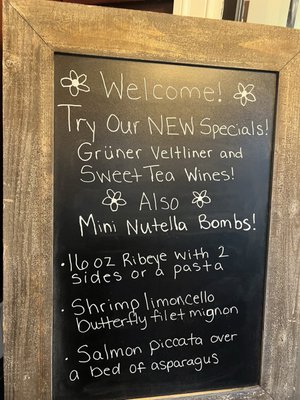 Welcome!
Try Our NEW Specials!
Grüner Veltliner and
Sweet Tea Wines!
Also
Mini Nutella Bombs!
• 16 oz Ribeye with 2
sides or a pasta
• Shrimp limoncello
butterfly filet mignon
• Salmon piccata over
a bed of asparagus